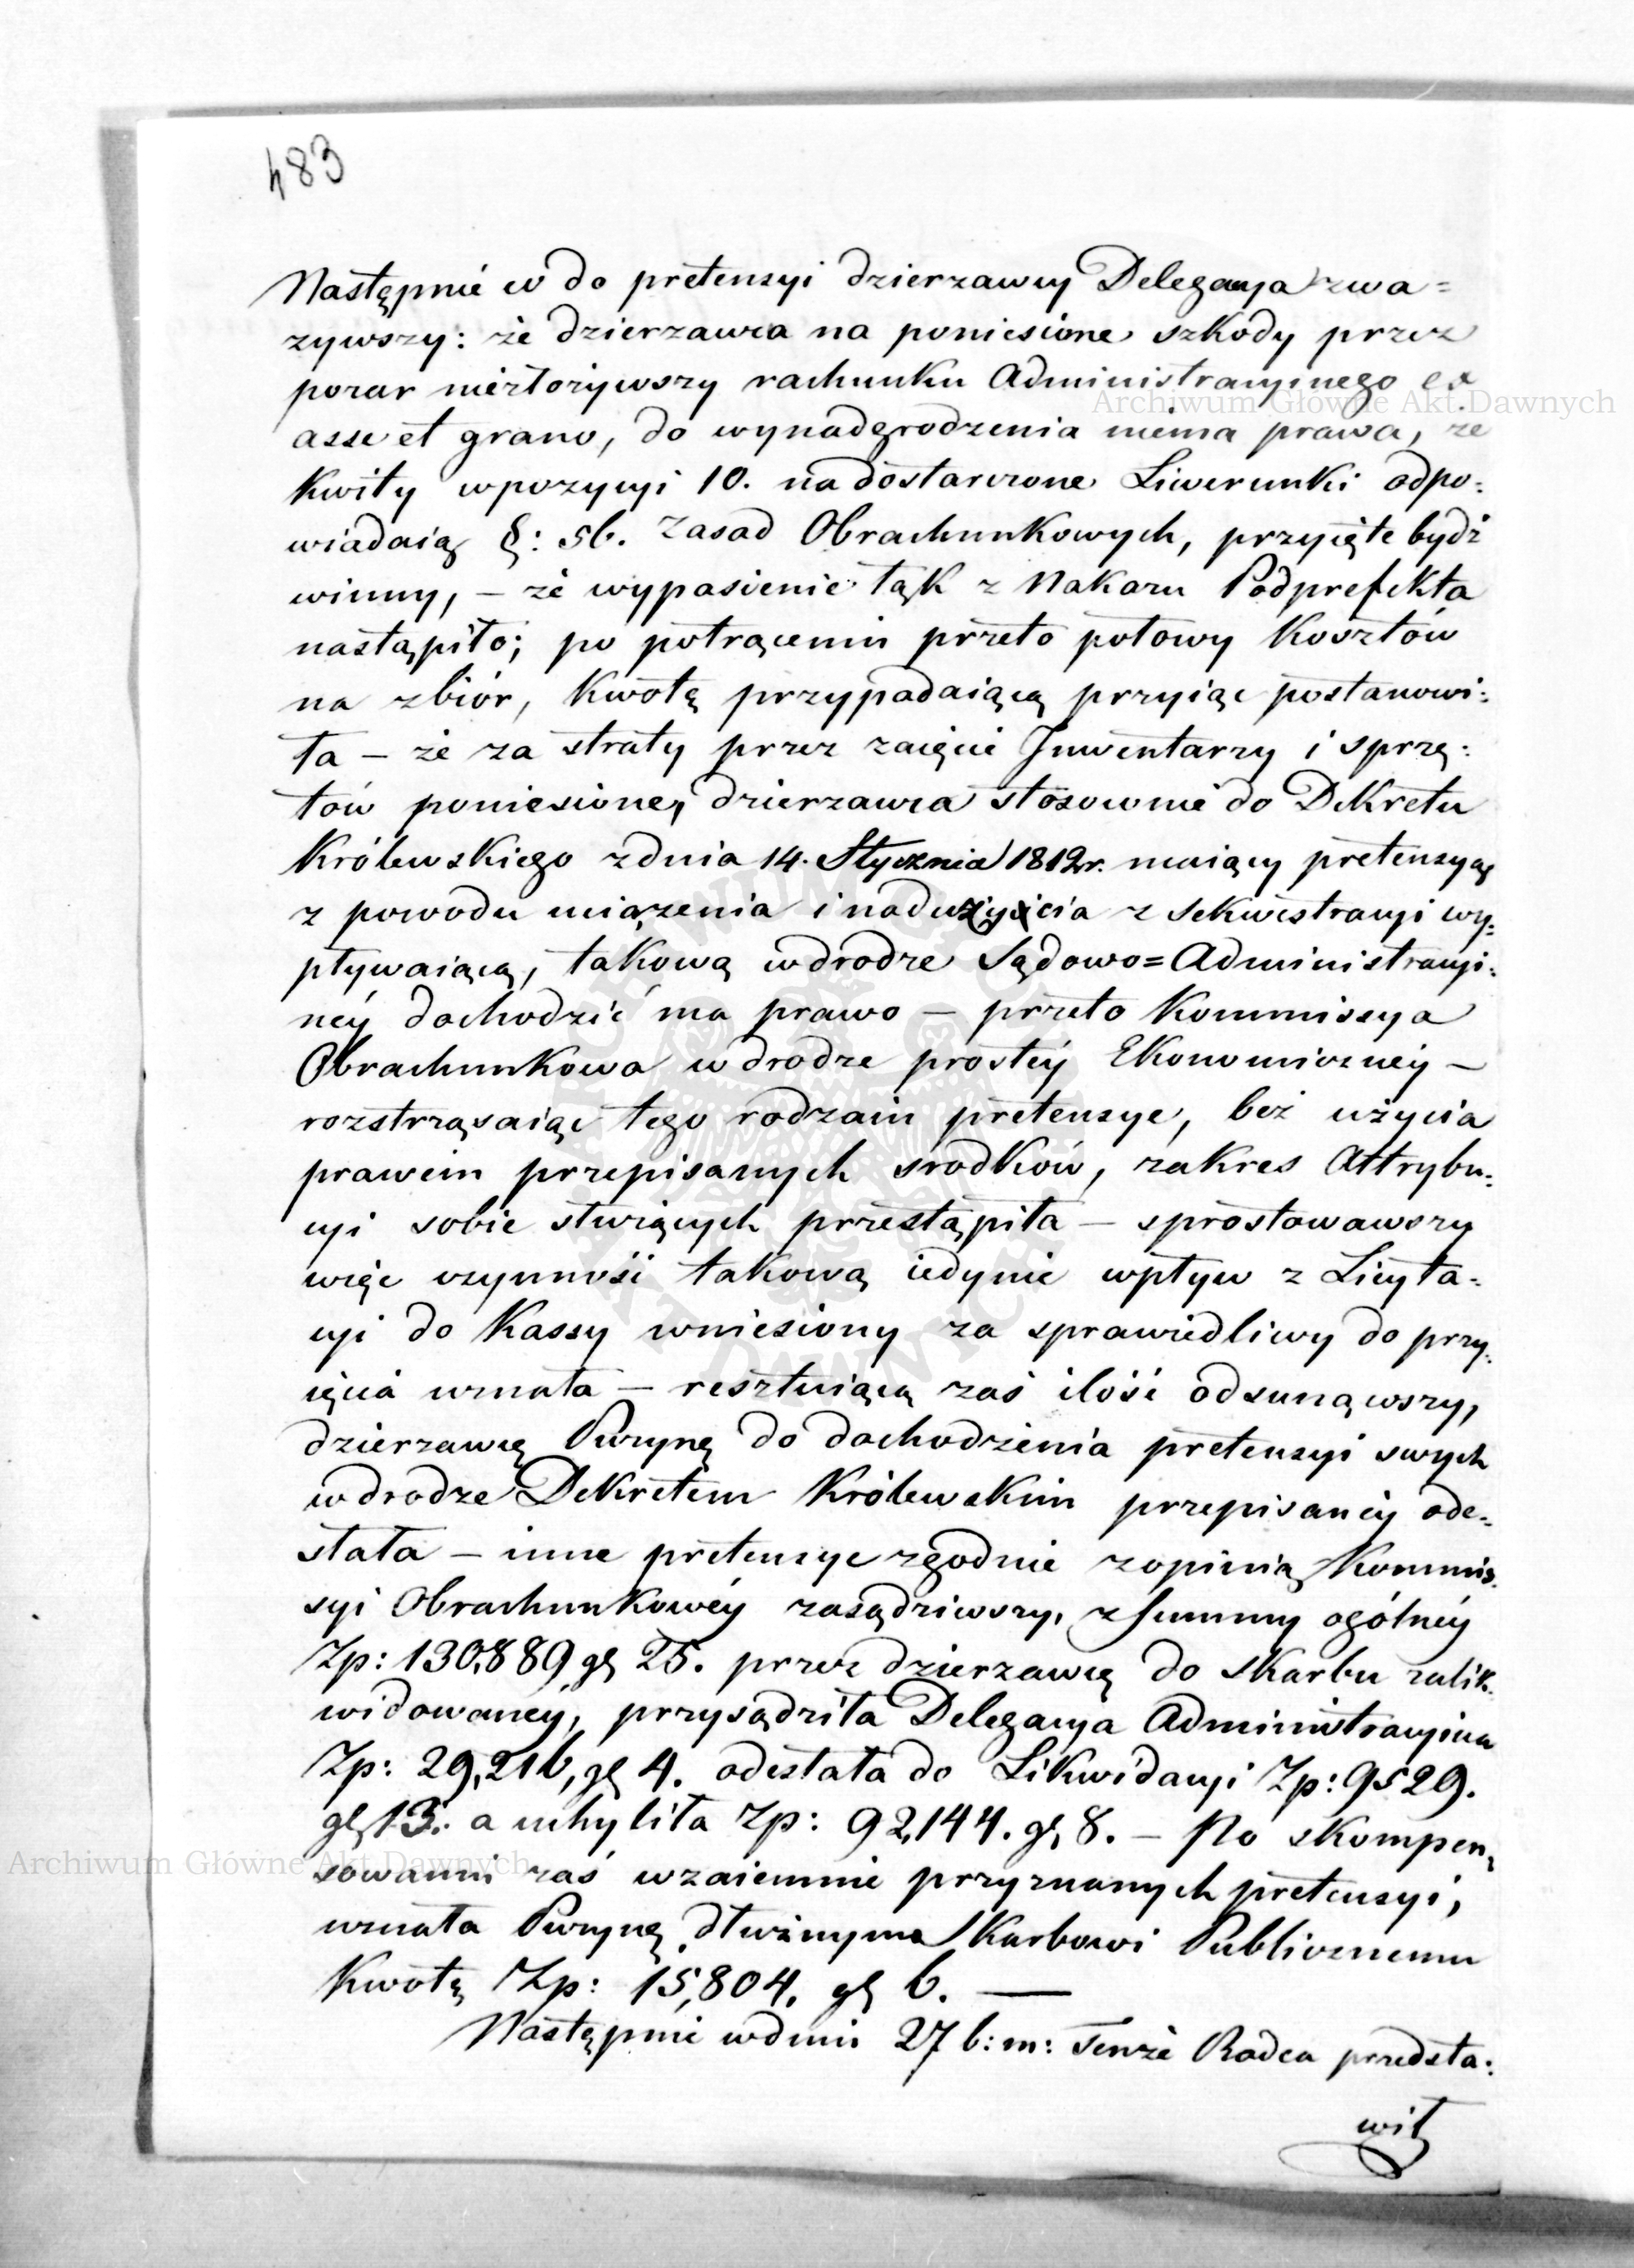 483
Następnie co do pretensyi dzierzawcy Delegacya zwa=
zywszy: że dzierzawca na poniesione szkody przez
pozar niezłożywszy rachunku Administracyinego ex
asse et grano, do wynadgrodzenia niema prawa, że
Kwity w pozycyi 10. na dostarczone Liwerunki odpo:
wiadaią §: 56. Zasad Obrachunkowych, przyięte bydź
winny, – że wypasienie łąk z Nakazu Podprefekta
nastąpiło; po potrąceniu przeto połowy Kosztów
na zbiór, Kwotę przypadaiącą przyiąc postanowi:
ła – że za straty przez zaięcie Inwentarzy i sprzę:
tów poniesione, dzierzawca stosownie do Dekretu
Królewskiego z dnia 14. Stycznia 1812r. maiący pretensyą
z powodu uciązenia i nadużycia z Sekwestracyi wy:
pływaiącą, takową w drodze Sądowo=Administracyi:
néy dochodzić ma prawo – przeto Kommissya
Obrachunkowa w drodze prostéy Ekonomiczney –
rozstrząsaiąc tego rodzaiu pretensye, beż użycia
prawem przepisanych srodków, zakres Attrybu:
cyi sobie słuzących przestąpiła – sprostowawszy
więc czynność takową iedynie wpływ z Licyta:
cyi do Kassy wniesiony za sprawiedliwy do przy:
ięcia uznała – resztuiącą zaś ilość odsunąwszy,
dzierzawcę Puzynę do dochodzenia pretensyi swych
w drodze Dekretem Królewskim przepisanéy ode:
słała – inne pretensye zgodnie z opinią Kommis:
syi Obrachunkowéy zasądziwszy, z Summy ogólnéy
Zp: 130,889 gl 25. przez dzierzawcę do Skarbu zalik:
widowanéy, przysądziła Delegacya Administracyina
Zp: 29,216, gl 4. odesłała do Likwidacyi Zp: 9529.
gl 13. a uchyliła Zp: 92,144. gl 8. – Po skompen:
sowaniu zaś wzaiemnie przyznanych pretensyi,
uznała Puzynę dłużnym Skarbowi Publicznemu
Kwotę Zp: 15,804. gl 6. —
Następnie w dniu 27 b: m: Tenże Radca przedsta:
wił